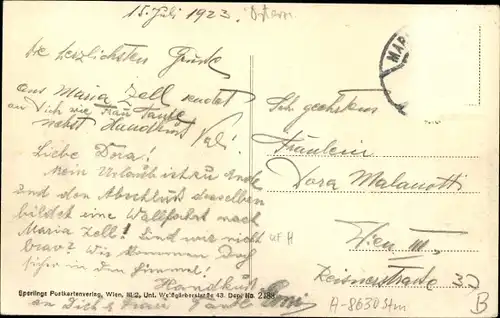 15. Juli 1923.
Die herzlichsten Grüße
aus Maria Zell sendet
an Dich wie Frau Tante
nebst Handkuß
Vali
Liebe Dora!
Mein Urlaub ist zu Ende
und den Abschluß desselben
bildet eine Wallfahrt nach
Maria Zell! Sind wir nicht
brav? Wir kommen
sicher in den Himmel!
Handkuß
an Dich & Frau Tante
Sperlings Postkartenverlag, Wien, III/2, Unt. Weißgärberstraße 43. Dep. No. 2188
MAR
Fräulein
Dora Malanotti
Wien III.
Reisnerstraße
A-8630 Stm
B